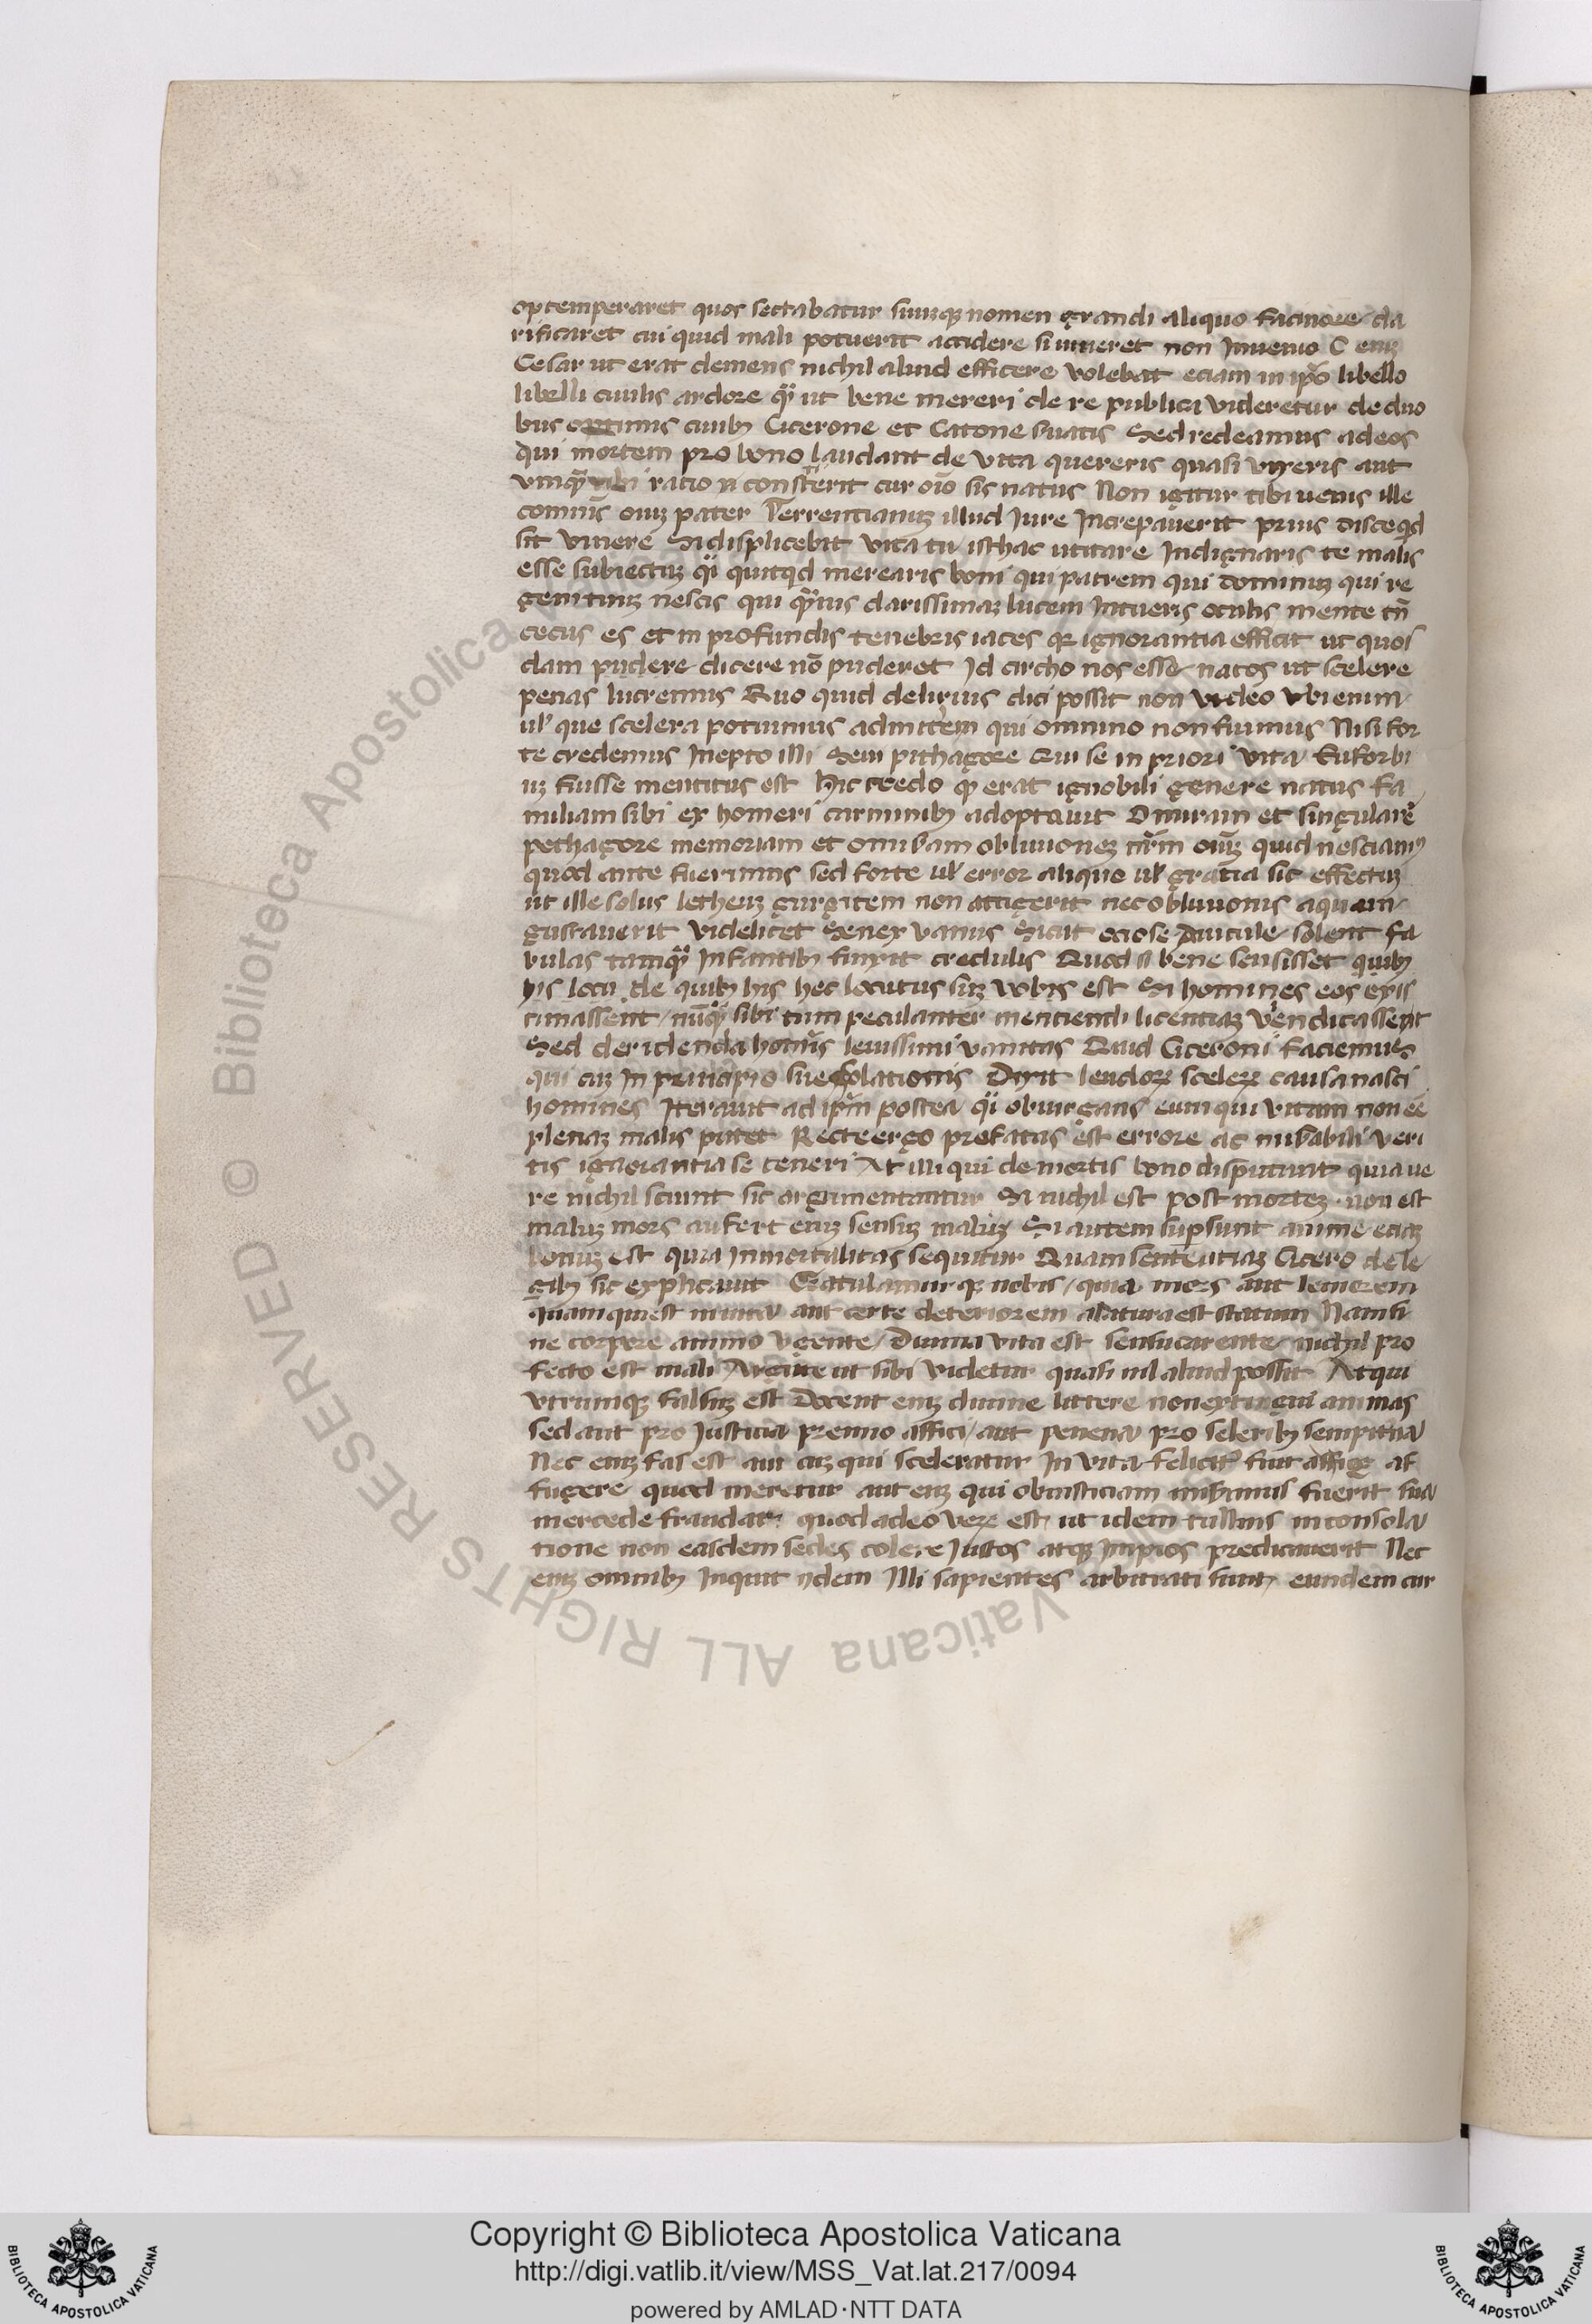 optemperaret quos sectabatur suumqꝫ nomen grandi aliquo facinore cla
rificaret cui quid mali potuerit accidere si uiueret non Inuenio C eniꝫ
Cesar ut erat clemens nichil aliud efficere volebat eciam in ip̄o libello
libelli ciuilis ardore qͣ ut bene mereri de re publica videretur de duo
bus optimis ciuibꝫ Cicerone et Catone suatis Sed redeamus ad eos
qui mortem pro bono laudant de vita quereris quasi vixeris aut
vmqͣ tibi ratio constiterit cur oīo sis natus Non igitur tibi uerus ille
comūis oīuꝫ pater Terrentianuꝫ illud Iure Increpauerit prius disce qͥd
sit viuere Si displicebit vita tu isthac utitare Indignaris te malis
esse subiectuꝫ qͣi quicqͥd merearis boni qui patrem qui dominuꝫ qui re
genituuꝫ nescis qui qͣuis clarissimaꝫ lucem Intueris oculis mente tn̄
cecus es et in profundis tenebris iaces qꝫ ignorantia efficit ut quos
dam pudere dicere nō puderet Id circho nos esse natos ut scelere
penas lueremus Quo quid delirius dici possit non video vbi enim
ul' que scelera potuimus admittere qui omnino non fuimus Nisi for
te credemus Inepto illi Seni pithagore Qui se in priori vita Euforbi
uꝫ fuisse mentitus est Hic credo qꝫ erat ignobili genere natus fa
miliam sibi ex homeri carminibꝫ adoptauit O miram et singularē
pethagore memoriam et o miseram obliuioneꝫ nr̄m oīuꝫ quid nesciamꝰ
quod ante fuerimus sed forte ul' error aliquo ul' gratia sit effectuꝫ
ut ille solus letheuꝫ gurgitem non attigerit nec obliuionis aquam
gustauerit videlicet Senex vanus Sicut ociose Auicule solent fa
bulas tamqͣ Infantibꝫ finxit credulis Quod si bene sensisset quibꝫ
his locu de quibꝫ his hec locutus suꝫ vobis est Si homines eos exis
timassent nūqͣ sibi tum peculanter mentiendi licentiaꝫ vendicassent
Sed deridenda hoīnis leuissimi vanitas Quid Ciceroni faciemus
qui cuꝫ In principio sue solationis Dixit luendoꝝ sceleꝝ causa nasci
homines Iterauit ad ip̄m postea qͣi obiurgans eum qui vitam non eē
plenaꝫ malis putet Recte ergo prefatus est errore ac miserabili veri
tis ignorantia se teneri At illi qui de mortis bono disputant quia ue
re nichil sciunt sic argumentantur Si nichil est post morteꝫ non est
maluꝫ mors aufert eniꝫ sensuꝫ maluꝫ Si autem supersunt anime eciaꝫ
bonuꝫ est quia Inmortalitas sequitur Quam sententiaꝫ Cicero de le
gibꝫ sic explicauit Gratulamur qꝫ nobis quia mors aut leniorem
quam qui est in uita aut certe deteriorem alatura est statum Nam si
ne corpore animo vgente Diuina vita est sensu carente nichil pro
fecto est mali Argute ut sibi videtur quasi nil aliud possit Atqui
vtrumqꝫ falsuꝫ est Docent eniꝫ diuine littere non extingui animas
sed aut pro Iusticia premio affici aut penena pro seleribꝫ sempiterna
Nec eniꝫ fas est aut cuꝫ qui sceleratur In vita felicit' fuit affigꝫ af
fugere quod meretur aut eniꝫ qui ob iusticiam miserimus fuerit sua
mercede fraudari quod adeo verꝫ est ut idem tullius in consola
tione non easdem sedes colere Iustos atqꝫ Impios predicauerit Nec
eniꝫ omnibꝫ Inquit ijdem Illi sapientes arbitrati sunt eundem cur